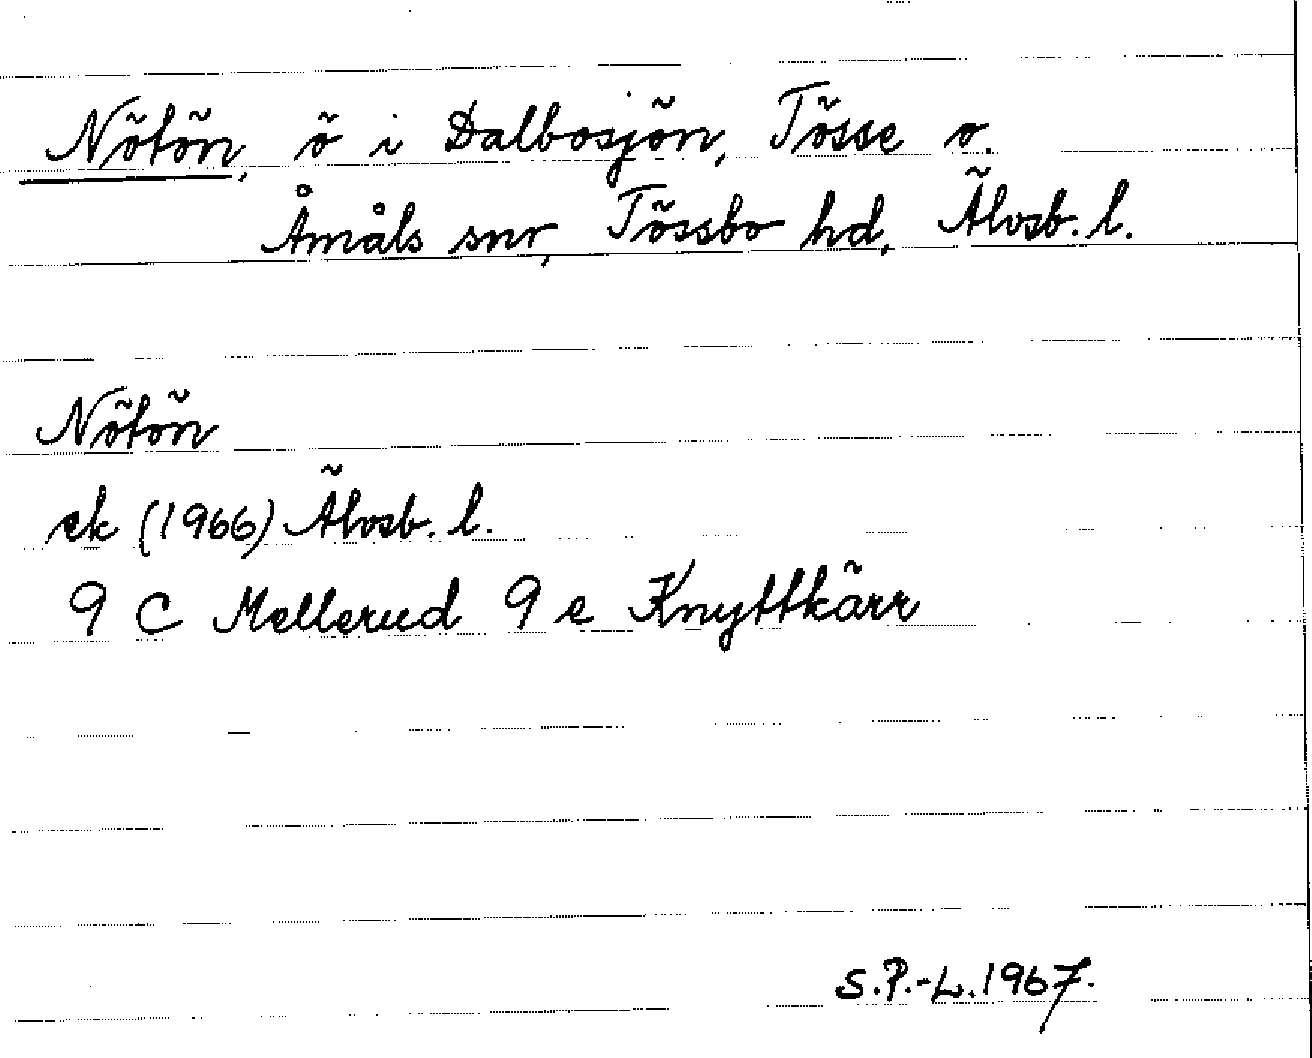 Nötön, ö i Dalbosjön, Tösse o.
Åmåls snr, Tössbo hd, Älvsb. l.
Nötön
ek (1966) Älvsb. l.
9 C Mellerud 9 e Knyttkärr
S.P.-L. 1967.